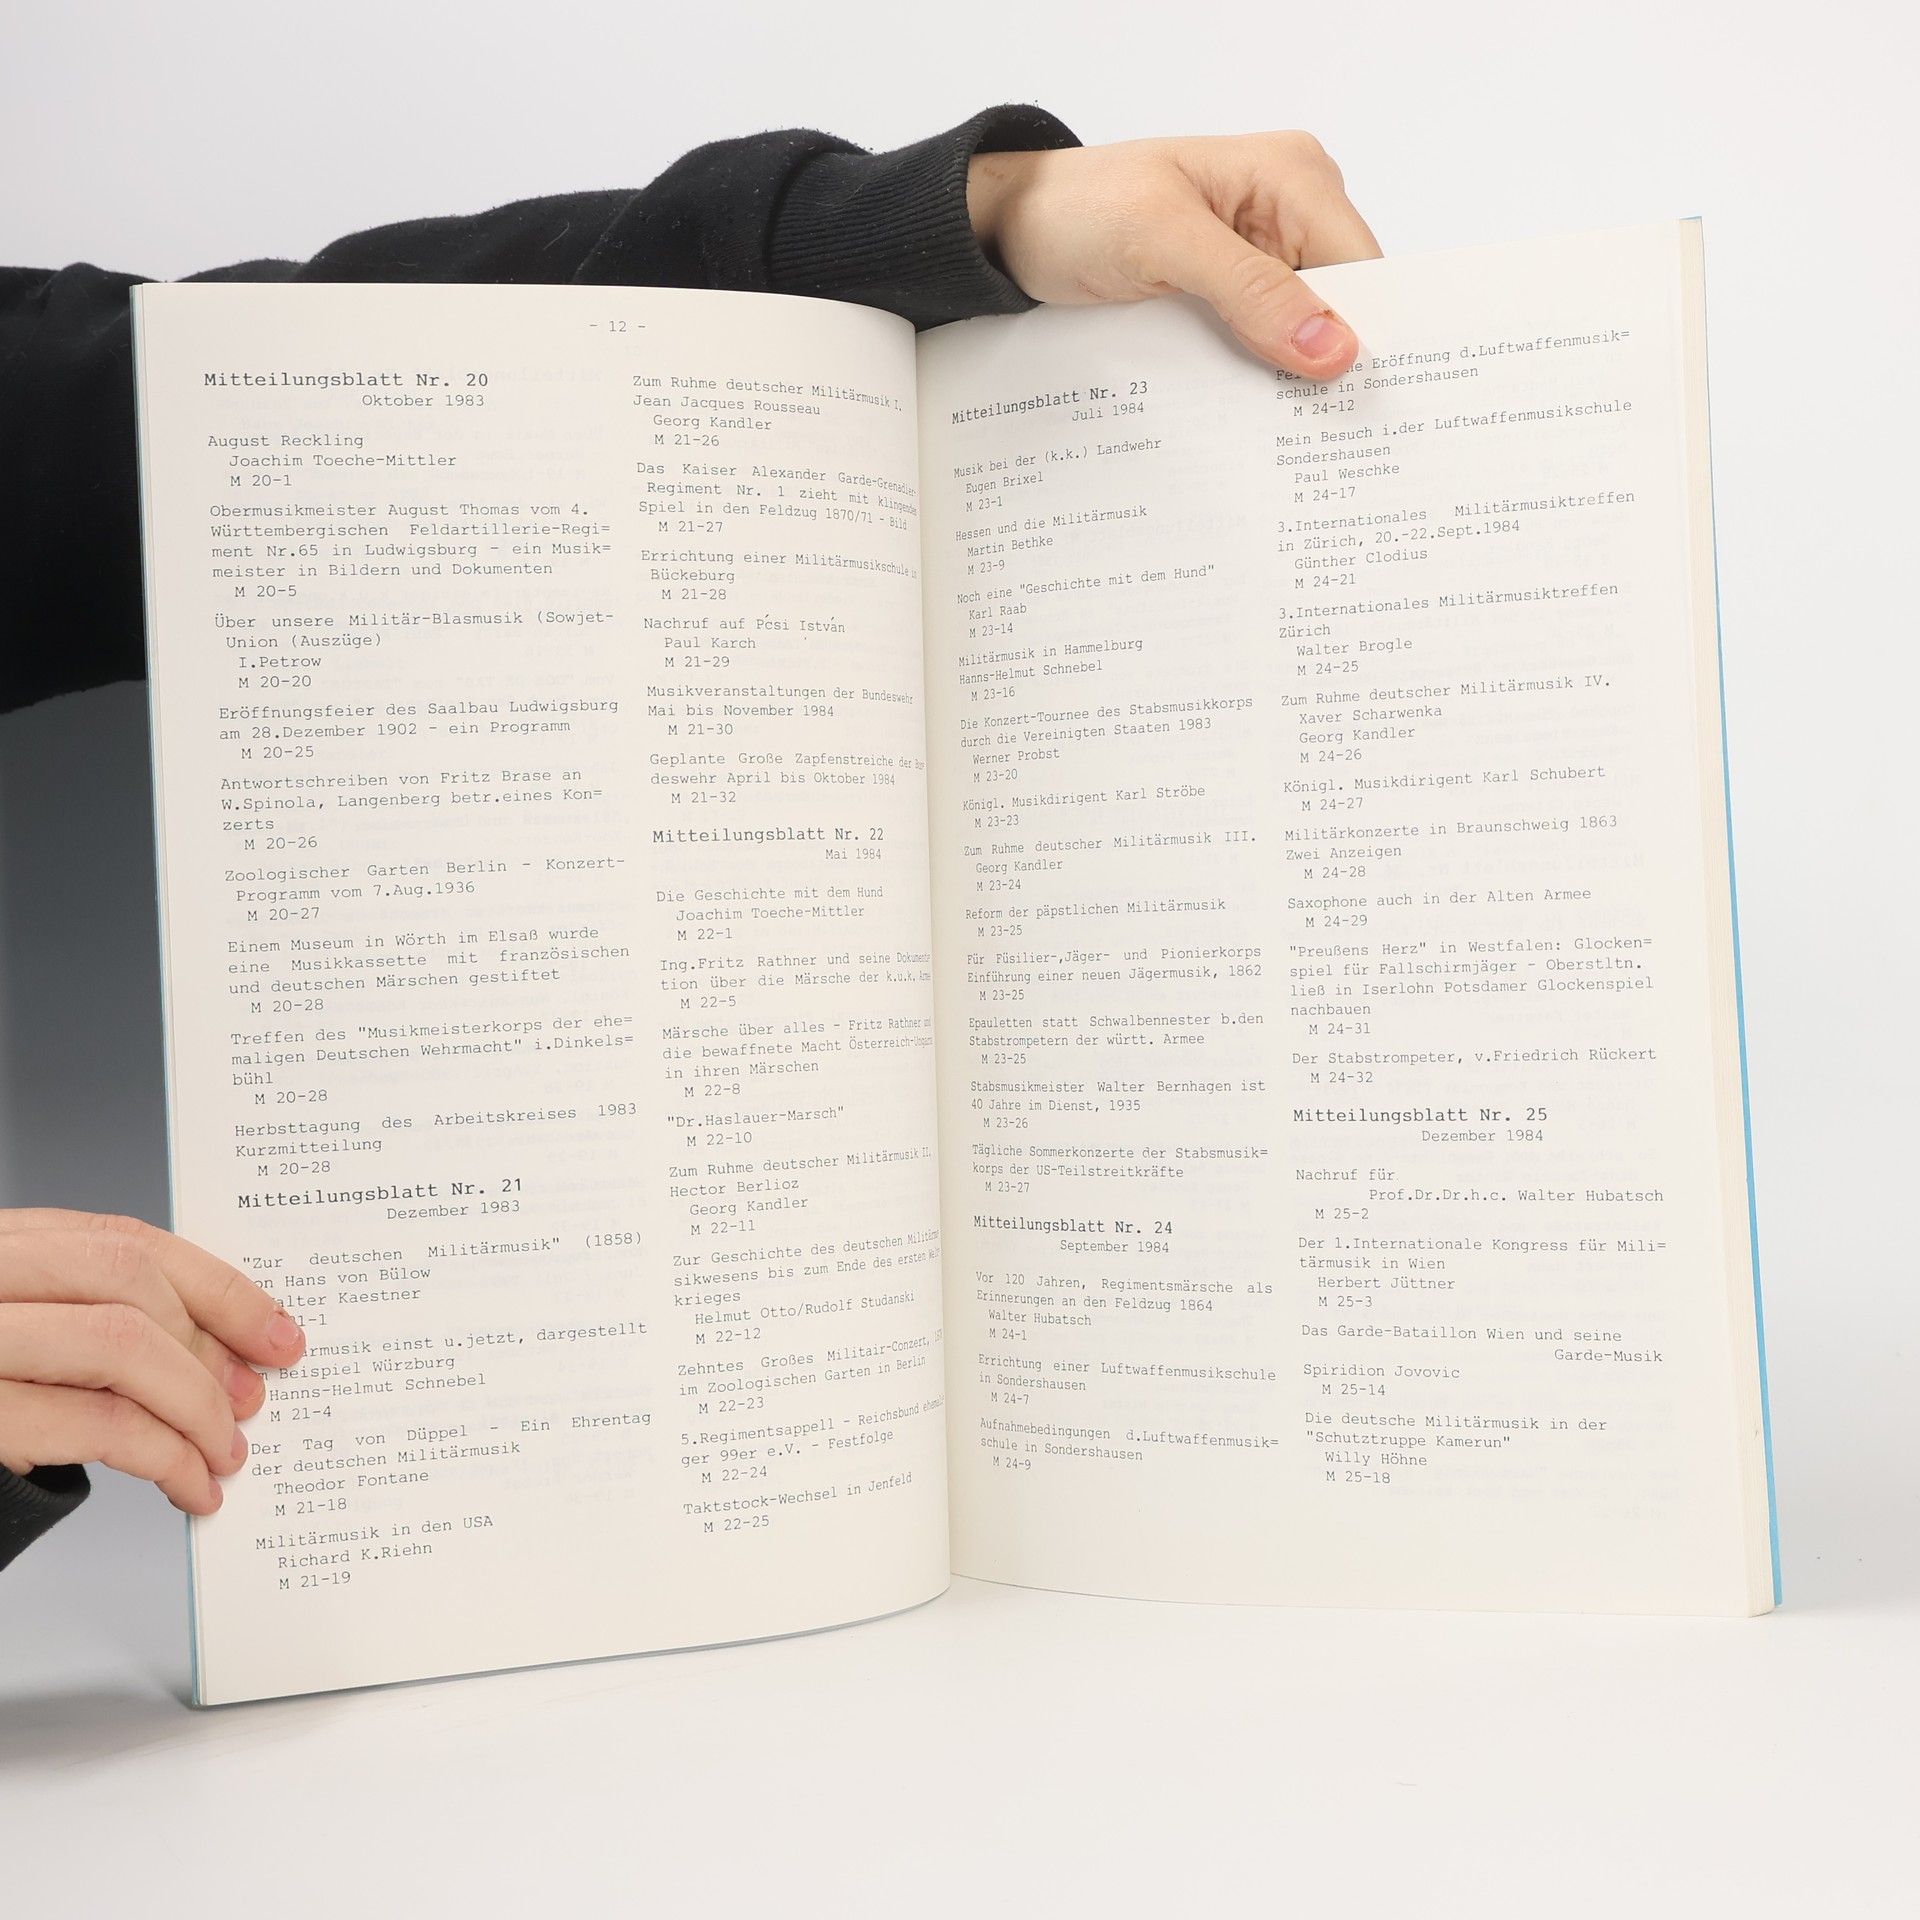 - 12 -
Mitteilungsblatt Nr. 20
Oktober 1983
August Reckling
Joachim Toeche-Mittler
M 20-1
Obermusikmeister August Thomas vom 4.
Württembergischen Feldartillerie-Regi=
ment Nr.65 in Ludwigsburg - ein Musik=
meister in Bildern und Dokumenten
M 20-5
Über unsere Militär-Blasmusik (Sowjet-
Union (Auszüge)
I.Petrow
M 20-20
Eröffnungsfeier des Saalbau Ludwigsburg
am 28.Dezember 1902 - ein Programm
M 20-25
Antwortschreiben von Fritz Brase an
W.Spinola, Langenberg betr.eines Kon=
zerts
M 20-26
Zoologischer Garten Berlin - Konzert-
Programm vom 7.Aug.1936
M 20-27
Einem Museum in Wörth im Elsaß wurde
eine Musikkassette mit französischen
und deutschen Märschen gestiftet
M 20-28
Treffen des "Musikmeisterkorps der ehe=
maligen Deutschen Wehrmacht" i.Dinkels=
bühl
M 20-28
Herbsttagung des Arbeitskreises 1983
Kurzmitteilung
M 20-28
Mitteilungsblatt Nr. 21
Dezember 1983
"Zur deutschen Militärmusik" (1858)
Hans von Bülow
Kaestner
einst u.jetzt, dargestellt
Beispiel Würzburg
Hanns-Helmut Schnebel
M 21-4
Der Tag von Düppel - Ein Ehrentag
der deutschen Militärmusik
Theodor Fontane
M 21-18
Militärmusik in den USA
Richard K.Riehn
M 21-19
Zum Ruhme deutscher Militärmusik I.
Jean Jacques Rousseau
Georg Kandler
M 21-26
Das Kaiser Alexander Garde-Grenadier-
Regiment Nr. 1 zieht mit klingendem
Spiel in den Feldzug 1870/71 - Bild
M 21-27
Errichtung einer Militärmusikschule in
Bückeburg
M 21-28
Nachruf auf Pécsi István
Paul Karch
M 21-29
Musikveranstaltungen der Bundeswehr
Mai bis November 1984
M 21-30
Geplante Große Zapfenstreiche der Bun=
deswehr April bis Oktober 1984
M 21-32
Mitteilungsblatt Nr. 22
Mai 1984
Die Geschichte mit dem Hund
Joachim Toeche-Mittler
M 22-1
Ing.Fritz Rathner und seine Dokumenta
tion über die Märsche der k.u.k. Armee
M 22-5
Märsche über alles - Fritz Rathner und
die bewaffnete Macht Österreich-Ungarns
in ihren Märschen
M 22-8
"Dr.Haslauer-Marsch"
M 22-10
Zum Ruhme deutscher Militärmusik II.
Hector Berlioz
Georg Kandler
M 22-11
Zur Geschichte des deutschen Militärmu
sikwesens bis zum Ende des ersten Welt
krieges
Helmut Otto/Rudolf Studanski
M 22-12
Zehntes Großes Militair-Conzert,
im Zoologischen Garten in Berlin
M 22-23
5.Regimentsappell - Reichsbund ehemali
ger 99er e.V. - Festfolge
M 22-24
Taktstock-Wechsel in Jenfeld
M 22-25
Mitteilungsblatt Nr. 23
Juli 1984
Musik bei der (k.k.) Landwehr
Eugen Brixel
M 23-1
Hessen und die Militärmusik
Martin Bethke
M 23-9
Noch eine "Geschichte mit dem Hund"
Karl Raab
M 23-14
Militärmusik in Hammelburg
Hanns-Helmut Schnebel
M 23-16
Die Konzert-Tournee des Stabsmusikkorps
durch die Vereinigten Staaten 1983
Werner Probst
M 23-20
Königl. Musikdirigent Karl Ströbe
M 23-23
Zum Ruhme deutscher Militärmusik III.
Georg Kandler
M 23-24
Reform der päpstlichen Militärmusik
M 23-25
Für Füsilier-,Jäger- und Pionierkorps
Einführung einer neuen Jägermusik, 1862
M 23-25
Epauletten statt Schwalbennester b.den
Stabstrompetern der württ. Armee
M 23-25
Stabsmusikmeister Walter Bernhagen ist
40 Jahre im Dienst, 1935
M 23-26
Tägliche Sommerkonzerte der Stabsmusik=
korps der US-Teilstreitkräfte
M 23-27
Mitteilungsblatt Nr. 24
September 1984
Vor 120 Jahren, Regimentsmärsche als
Erinnerungen an den Feldzug 1864
Walter Hubatsch
M 24-1
Errichtung einer Luftwaffenmusikschule
in Sondershausen
M 24-7
Aufnahmebedingungen d.Luftwaffenmusik=
schule in Sondershausen
M 24-9
Eröffnung d.Luftwaffenmusik=
schule in Sondershausen
M 24-12
Mein Besuch i.der Luftwaffenmusikschule
Sondershausen
Paul Weschke
M 24-17
3.Internationales Militärmusiktreffen
in Zürich, 20.-22.Sept.1984
Günther Clodius
M 24-21
3.Internationales Militärmusiktreffen
Zürich
Walter Brogle
M 24-25
Zum Ruhme deutscher Militärmusik IV.
Xaver Scharwenka
Georg Kandler
M 24-26
Königl. Musikdirigent Karl Schubert
M 24-27
Militärkonzerte in Braunschweig 1863
Zwei Anzeigen
M 24-28
Saxophone auch in der Alten Armee
M 24-29
"Preußens Herz" in Westfalen: Glocken=
spiel für Fallschirmjäger - Oberstltn.
ließ in Iserlohn Potsdamer Glockenspiel
nachbauen
M 24-31
Der Stabstrompeter, v.Friedrich Rückert
M 24-32
Mitteilungsblatt Nr. 25
Dezember 1984
Nachruf für
Prof.Dr.Dr.h.c. Walter Hubatsch
M 25-2
Der 1.Internationale Kongress für Mili=
tärmusik in Wien
Herbert Jüttner
M 25-3
Das Garde-Bataillon Wien und seine
Garde-Musik
Spiridion Jovovic
M 25-14
Die deutsche Militärmusik in der
"Schutztruppe Kamerun"
Willy Höhne
M 25-18